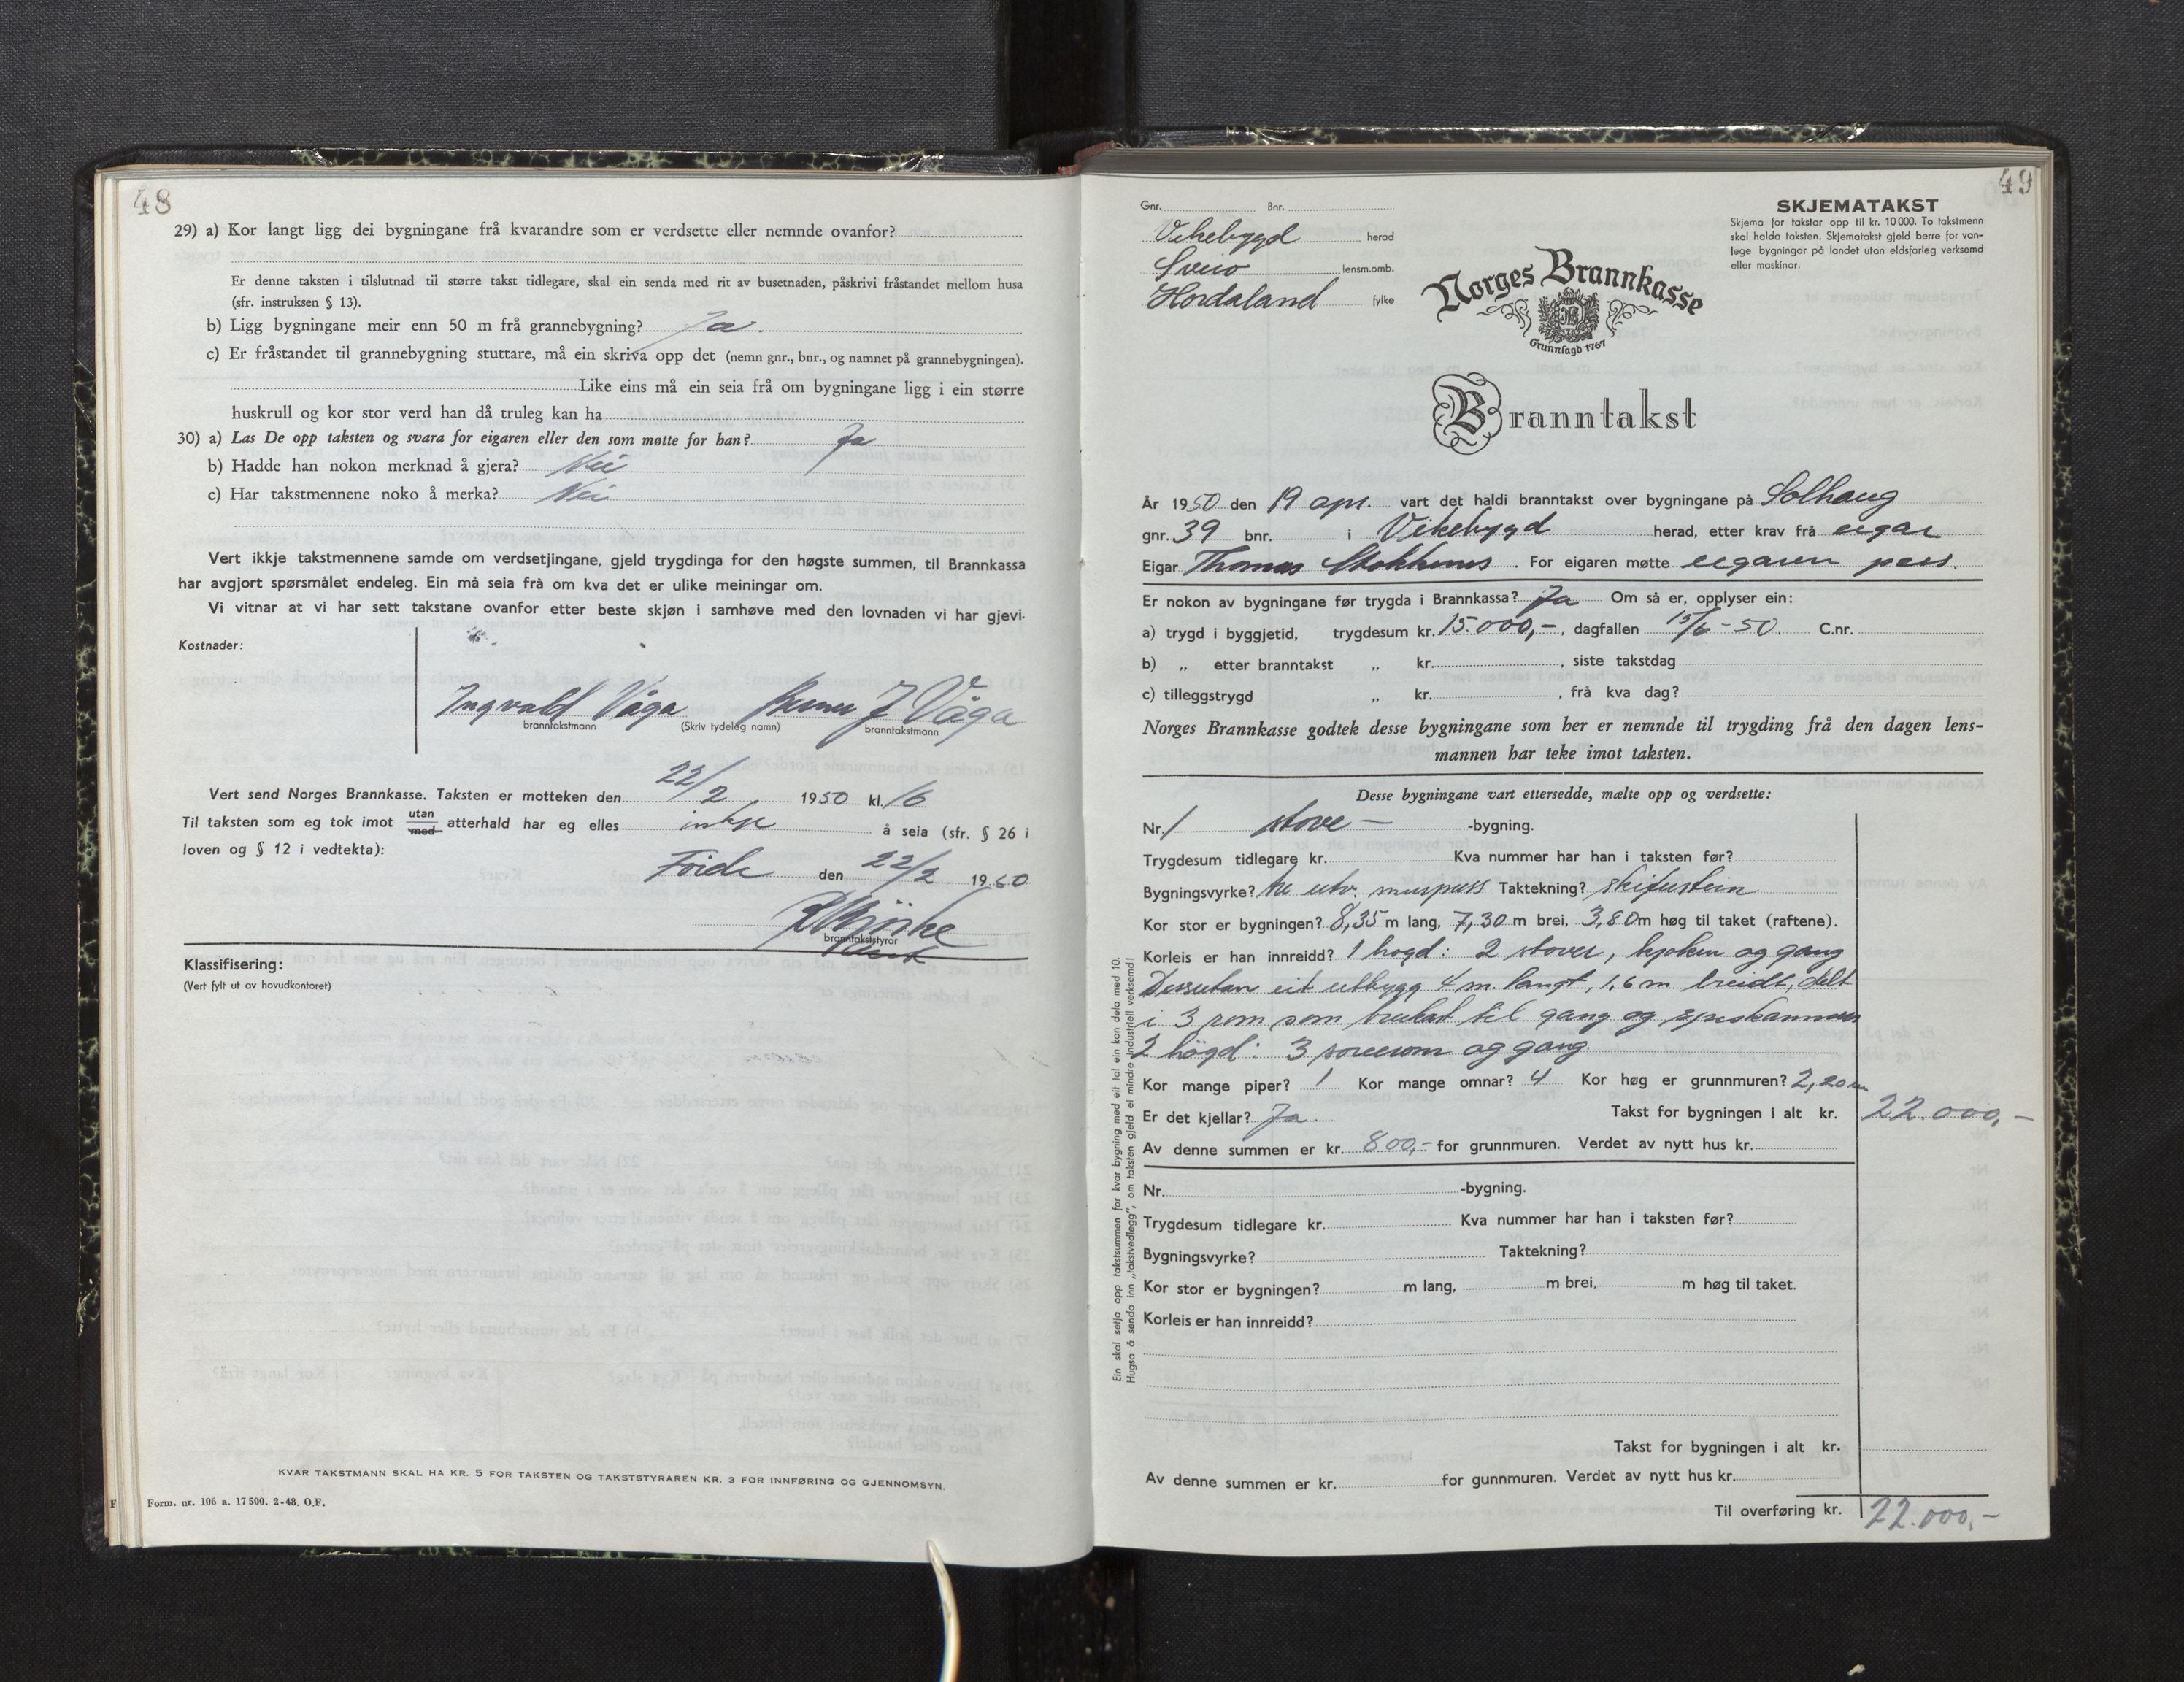 48
29) a) Kor langt ligg dei bygningane frå kvarandre som er verdsette eller nemnde ovanfor?
Er denne taksten i tilslutnad til større takst tidlegare, skal ein senda med rit av busetnaden, påskrivi fråstandet mellom husa
(sfr. instruksen § 13).
b) Ligg bygningane meir enn 50 m frå grannebygning? Ja.
c) Er fråstandet til grannebygning stuttare, må ein skriva opp det (nemn gnr., bnr., og namnet på grannebygningen).
Like eins må ein seia frå om bygningane ligg i ein større
huskrull og kor stor verd han då truleg kan ha
30) a) Las De opp taksten og svara for eigaren eller den som møtte for han? Ja
b) Hadde han nokon merknad å gjera? Nei
c) Har takstmennene noko å merka? Nei
Vert ikkje takstmennene samde om verdsetjingane, gjeld trygdinga for den høgste summen, til Brannkassa
har avgjort spørsmålet endeleg. Ein må seia frå om kva det er ulike meiningar om.
Vi vitnar at vi har sett takstane ovanfor etter beste skjøn i samhøve med den lovnaden vi har gjevi.
Kostnader:
Ingvald Våga J Våga
branntakstmann (Skriv tydeleg namn) branntakstmann
Vert send Norges Brannkasse. Taksten er motteken den 22/2 1950 kl. 16
Til taksten som eg tok imot utan med atterhald har eg elles intkje å seia (sfr. § 26 i
loven og § 12 i vedtekta):
Førde den 22/2 1950
branntakststyrar
Klassifisering:
(Vert fylt ut av hovudkontoret)
KVAR TAKSTMANN SKAL HA KR. 5 FOR TAKSTEN OG TAKSTSTYRAREN KR. 3 FOR INNFØRING OG GJENNOMSYN.
Form. nr. 106 a. 17 500. 2-48. O.F.
49
Gnr. Bnr.
Vikebygd herad
Sveio lensm.omb.
Hordaland fylke
SKJEMATAKST
Skjema for takstar opp til kr. 10 000. To takstmenn
skal halda taksten. Skjematakst gjeld berre for van-
lege bygningar på landet utan eldsfarleg verksemd
eller maskinar.
Norges Brannkasse
Grunnlagd 1767
Branntakst
År 1950 den 19 apr. vart det haldi branntakst over bygningane på Solhaug
gnr. 39 bnr. i Vikebygd herad, etter krav frå eigar
Eigar Thomas Stokkenes. For eigaren møtte eigaren pers.
Er nokon av bygningane før trygda i Brannkassa? Ja Om så er, opplyser ein:
a) trygd i byggjetid, trygdesum kr. 15.000,-, dagfallen 15/6-50. C.nr.
b) „ etter branntakst „ kr. , siste takstdag
c) tilleggstrygd „ kr. , frå kva dag?
Norges Brannkasse godtek desse bygningane som her er nemnde til trygding frå den dagen lens-
mannen har teke imot taksten.
Desse bygningane vart ettersedde, mælte opp og verdsette:
Nr. 1 stove- -bygning.
Trygdesum tidlegare kr. Kva nummer har han i taksten før?
Bygningsvyrke? tre utv. murpuss Taktekning? skiferstein
Kor stor er bygningen? 8,35 m lang, 7,30 m brei, 3,80 m høg til taket (raftene).
Korleis er han innreidd? 1 høgd: 2 stover, kjøken og gang
Dessutan eit utbygg 4 m. langt, 1,6 m breidt, delt
i 3 rom som brukast til gang og spiskammer
2 høgd: 3 soverom og gang.
Kor mange piper? 1 Kor mange omnar? 4 Kor høg er grunnmuren? 2,20 m
Er det kjellar? Ja. Takst for bygningen i alt kr. 22.000,-
Av denne summen er kr. 800,- for grunnmuren. Verdet av nytt hus kr.
Nr. -bygning.
Trygdesum tidlegare kr. Kva nummer har han i taksten før?
Bygningsvyrke? Taktekning?
Kor stor er bygningen? m lang, m brei, m høg til taket.
Korleis er han innreidd?
Takst for bygningen i alt kr.
Av denne summen er kr. for gunnmuren. Verdet av nytt hus kr.
Til overføring kr. 22.000,-
Ein skal setja opp takstsummen for kvar bygning med eit tal ein kan dela med 10.
Hugsa å senda inn „takstvedlegg", om taksten gjeld ei mindre industriell verksemd!